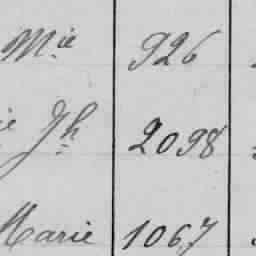 Mie 926
ie Jh 2098
Marie 1067